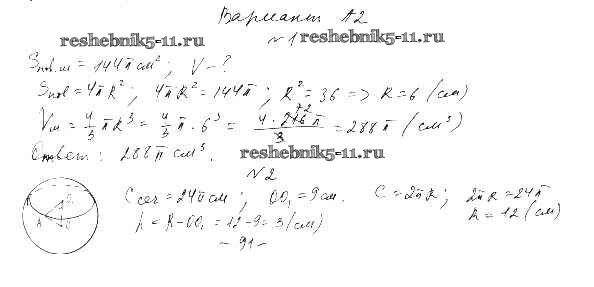 Вариант А2
reshebnik5-11.ru
№1 reshebnik5-11.ru
Sпов.ш = 144π см²; V - ?
Sпов = 4πR²; 4πR² = 144π; R² = 36 => R = 6 (см)
Vш = 4/3 πR³ = 4/3 π · 6³ = 4 · 216 72 π / 3 = 288π (см³)
Ответ: 288π см³.
reshebnik5-11.ru
№2
Cсеч = 24π см; OO₁ = 9 см. C = 2πR; 2πR = 24π
R = 12 (см)
h = R - OO₁ = 12 - 9 = 3 (см)
O₁
A
O
- 91 -